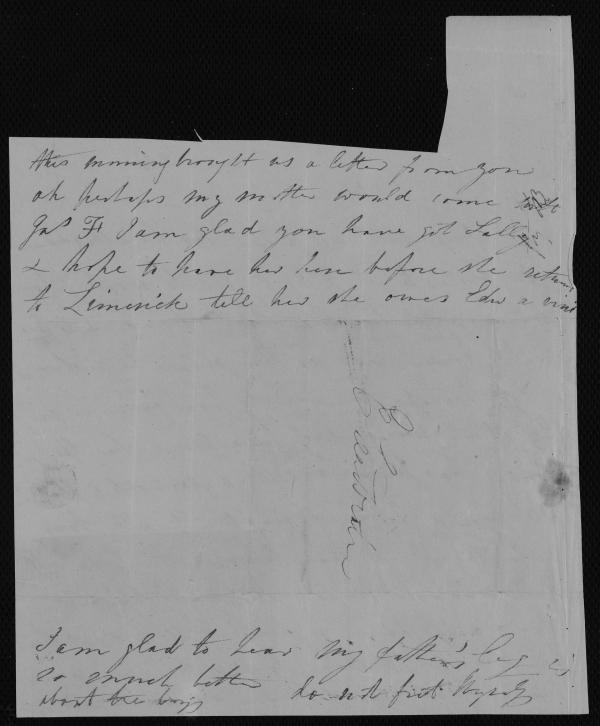 this morning brought us a letter from you
oh perhaps my mother would come
Jas Ft I am glad you have got Sally
& hope to have her here before she returns
to Limerick tell her she owes Edw a visit
I am glad to hear my father's leg is
so much better do not fret
about the boys